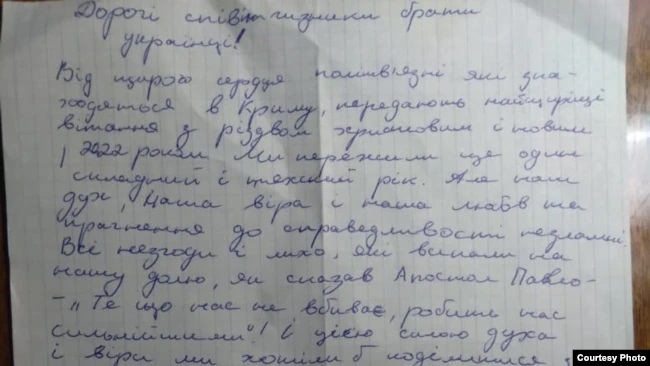 Дорогі співвітчизники брати
українці!
Від щирого сердця політв'язні які зна-
ходяться в Криму, передають найщиріші
вітання з різдвом христовим і новим
2022 роком. Ми пережили ще один
складний і тяжкий рік. Але наш
дух, наша віра і наша любов та
прагнення до справедливості незламні.
Всі незгоди і лихо, які випали на
нашу долю, як сказав Апостол Павло-
-„Те що нас не вбиває, робить нас
сильнійшими"! і цією силою духа
і віри ми хотіли б поділитися з
Courtesy Photo